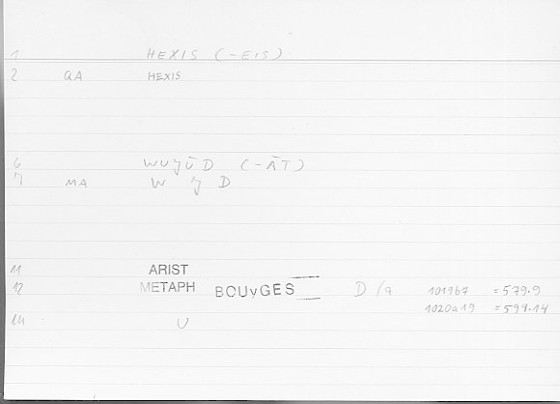 1 HEXIS (-EIS)
2 QA HEXIS
6 WUǦŪD (-ĀT)
7 MA W Ǧ D
11 ARIST
12 METAPH BOUyGES D /a 1019b7 = 579.9
1020a19 = 594.14
14 U